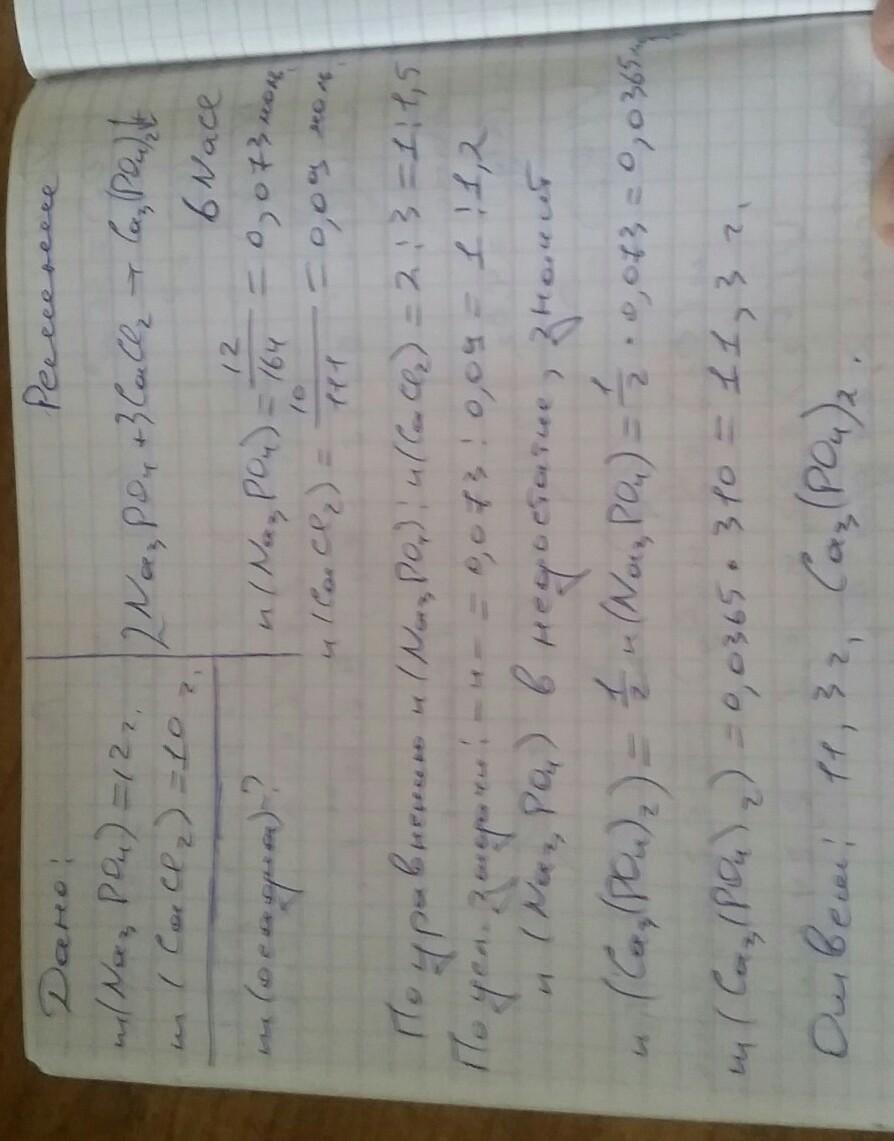 Дано:
m(Na₃PO₄)=12г.
m(CaCl₂)=10г.
m(осадка)-?
Решение
2Na₃PO₄+3CaCl₂→Ca₃(PO₄)₂↓
6NaCl
n(Na₃PO₄)=12/164=0,073моль.
n(CaCl₂)=10/111=0,09 моль.
По уравнению n(Na₃PO₄):n(CaCl₂)=2:3=1:1,5
По усл. задачи: -и- = 0,073:0,09=1:1,2
n(Na₃PO₄) в недостатке, значит
n(Ca₃(PO₄)₂)=1/2n(Na₃PO₄)=1/2·0,073=0,0365м
m(Ca₃(PO₄)₂)=0,0365·310=11,3г.
Ответ: 11,3г. Ca₃(PO₄)₂.